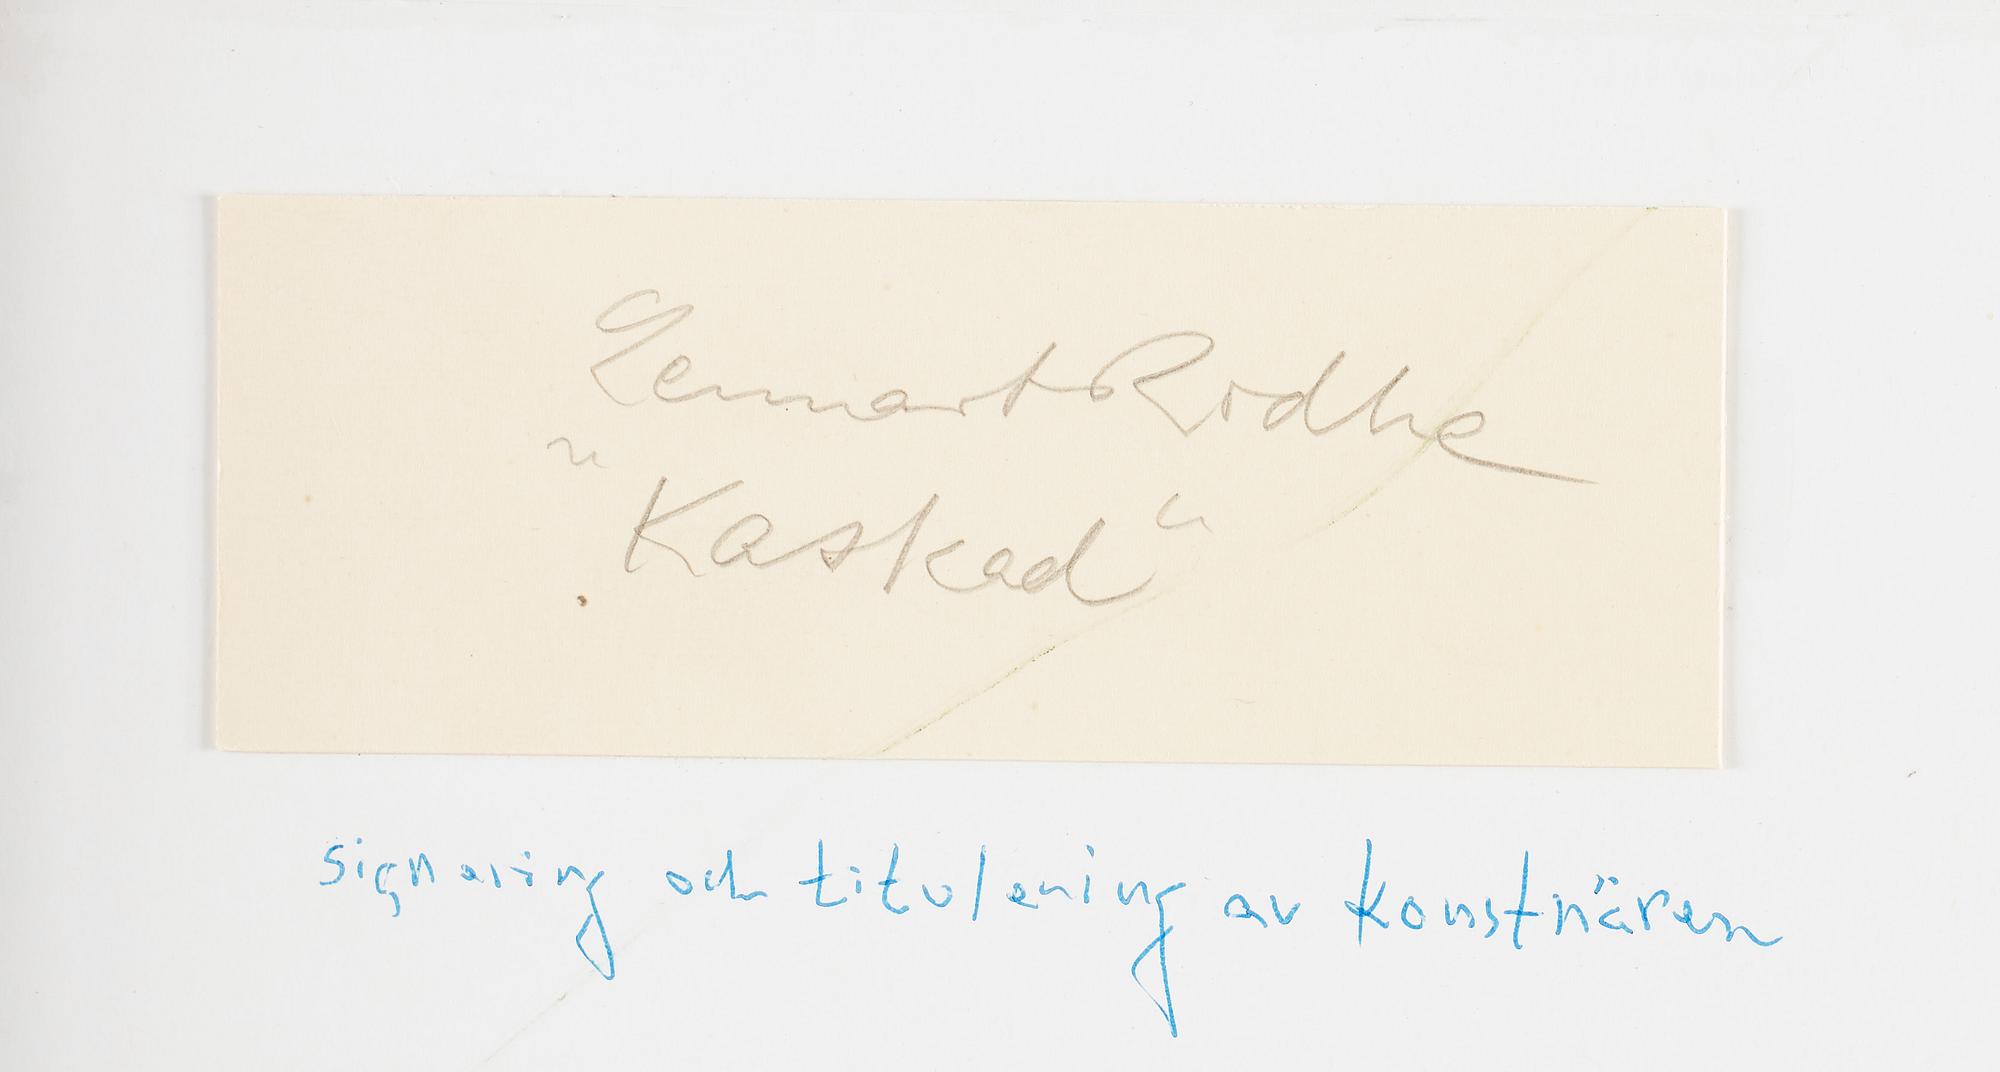 Lennart Rodhe
"Kaskad"
signering och titulering av konstnären